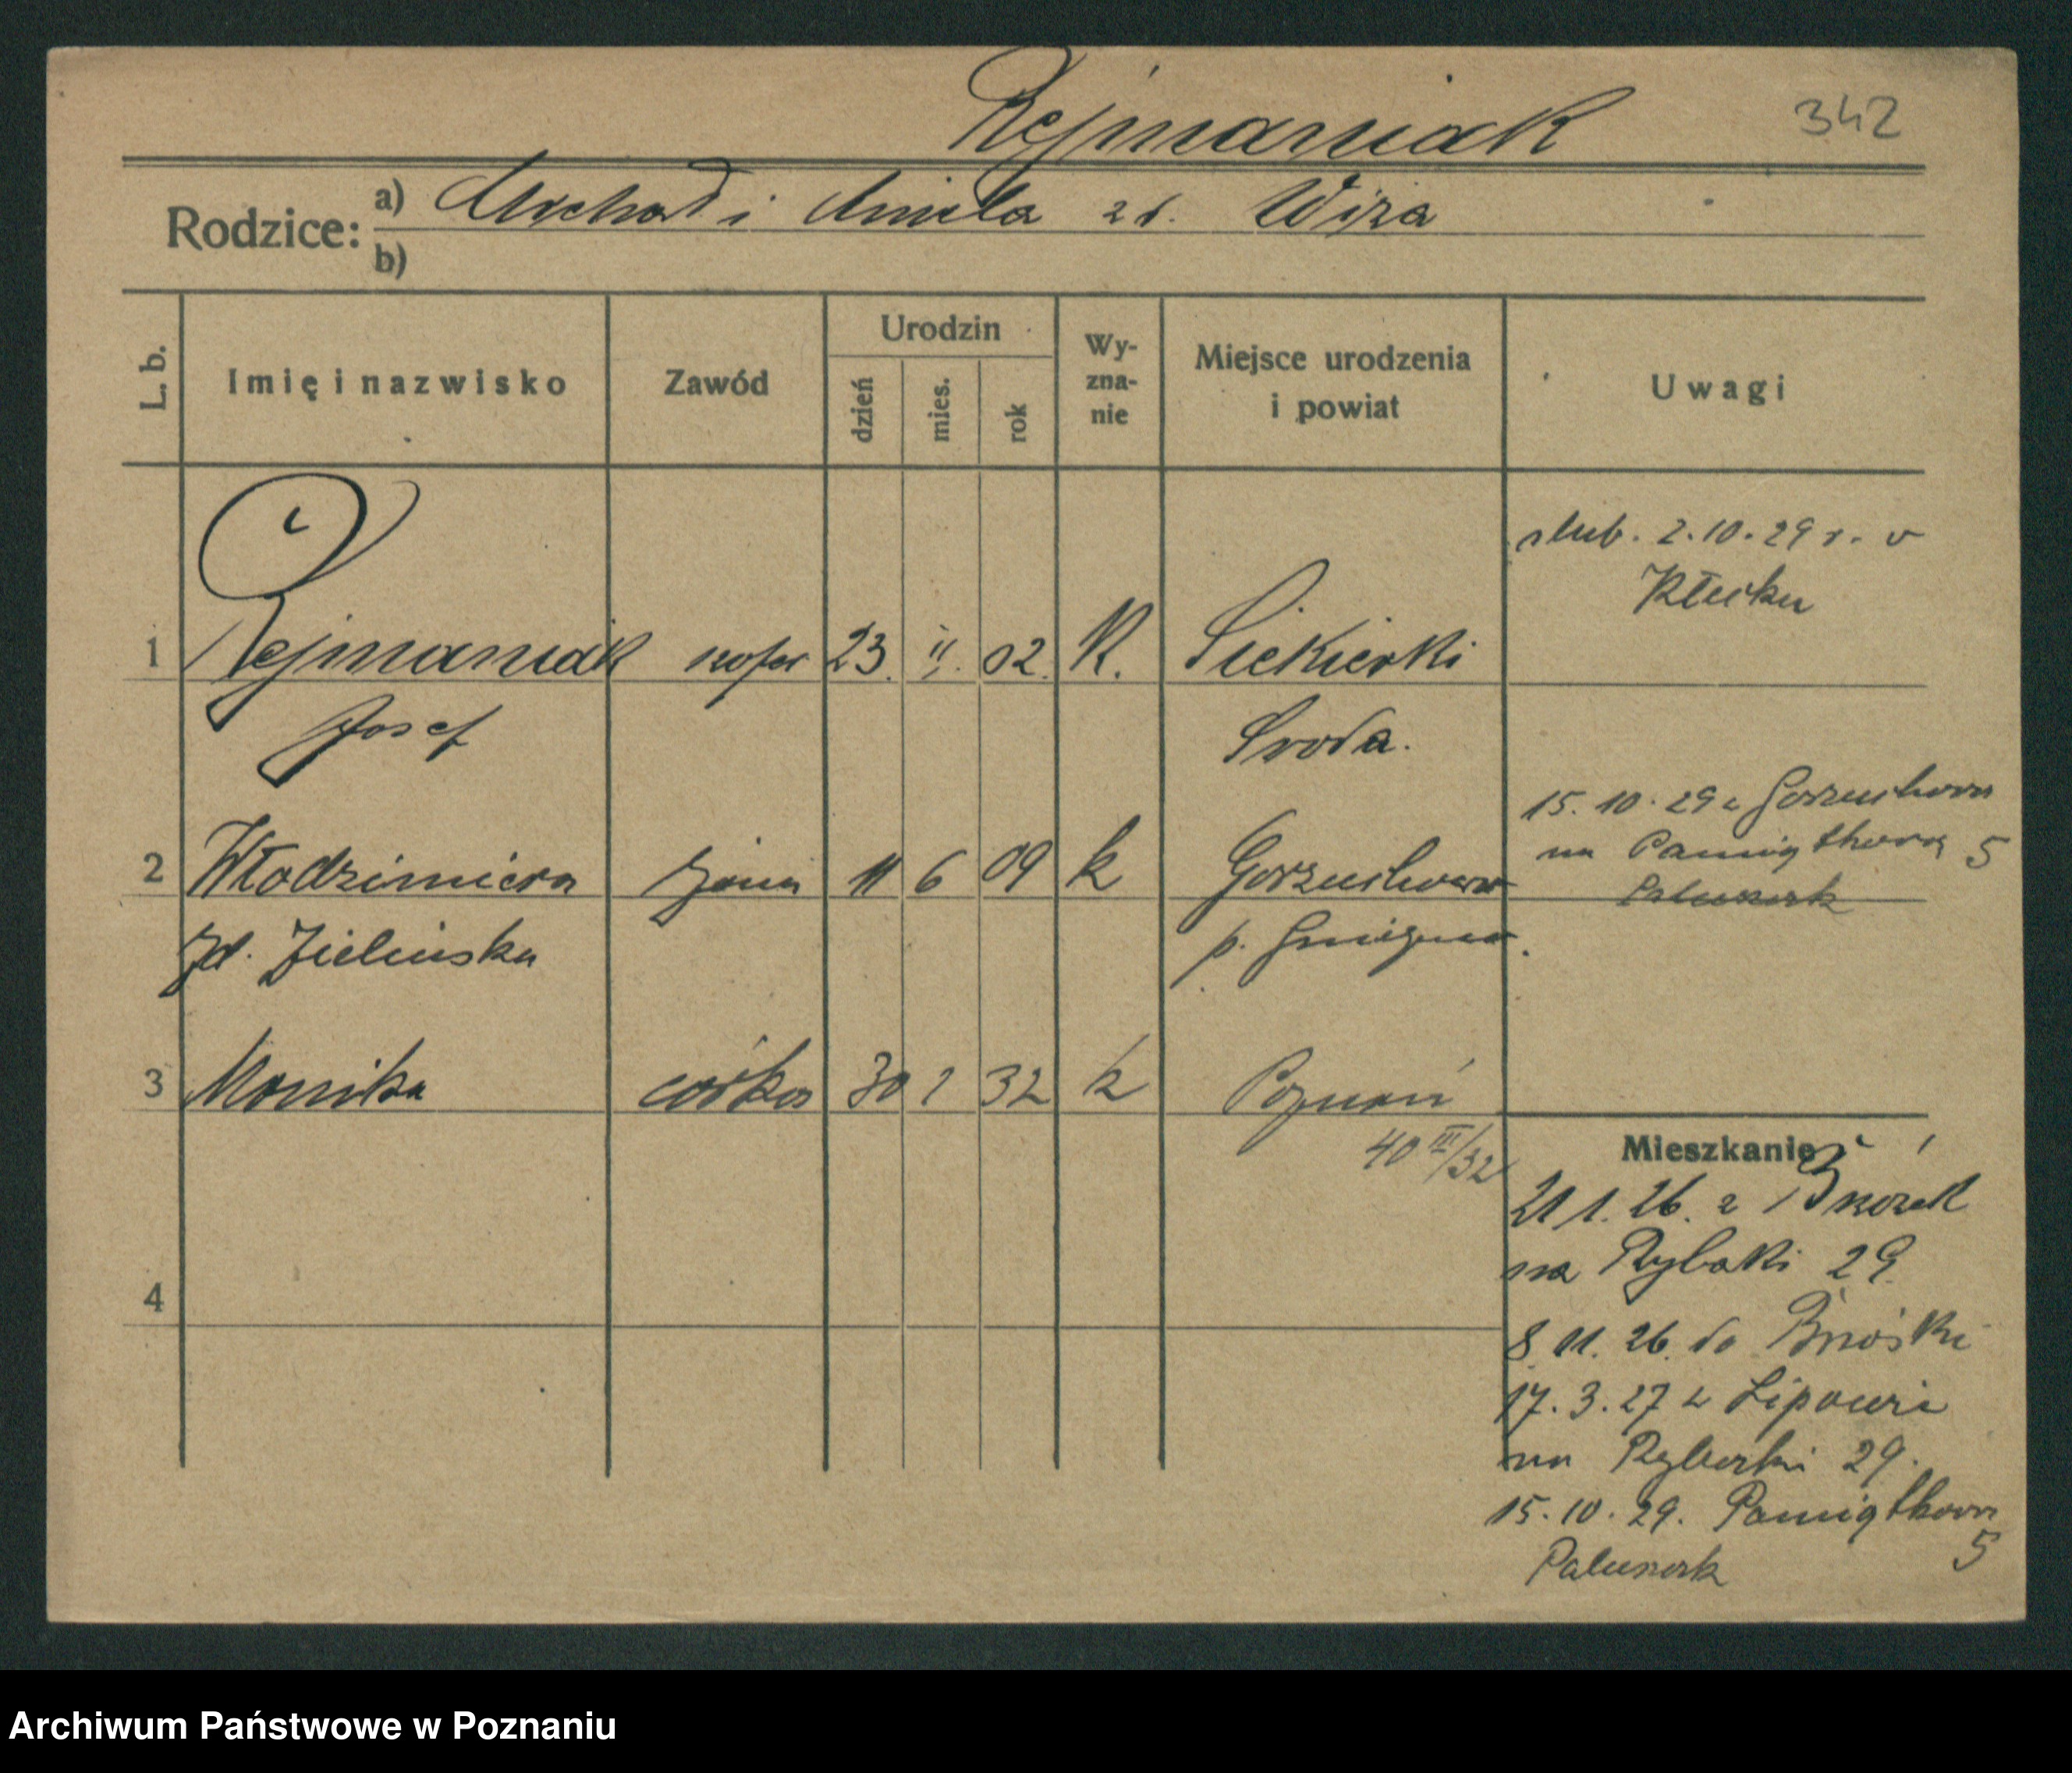 Rejmaniak 342
Rodzice: a) Michał i Aniela zd. Wiza
b)
L. b. Imię i nazwisko Zawód Urodzin dzień mies. rok Wy-zna-nie Miejsce urodzenia i powiat Uwagi
ślub. 2.10.29 r. w
Kłecku
1 Rejmaniak szofer 23. II. 02. K. Siekierki
Josef Środa.
15.10.29 z Gorzuchowa
na Pamiątkową 5
2 Włodzimiera żona 11 6 09 k Gorzuchowo
Paluszak
zd. Zielińska p. Gniezno.
3 Monika córka 30 1 32 k Poznań
40 III/32
Mieszkanie
21 1. 26. z
na Rybaki 29.
4
8 11. 26. do
17. 3. 27 z Lipowiec
na Rybaki 29.
15. 10. 29. Pamiątkowa
5
Paluszak
Archiwum Państwowe w Poznaniu